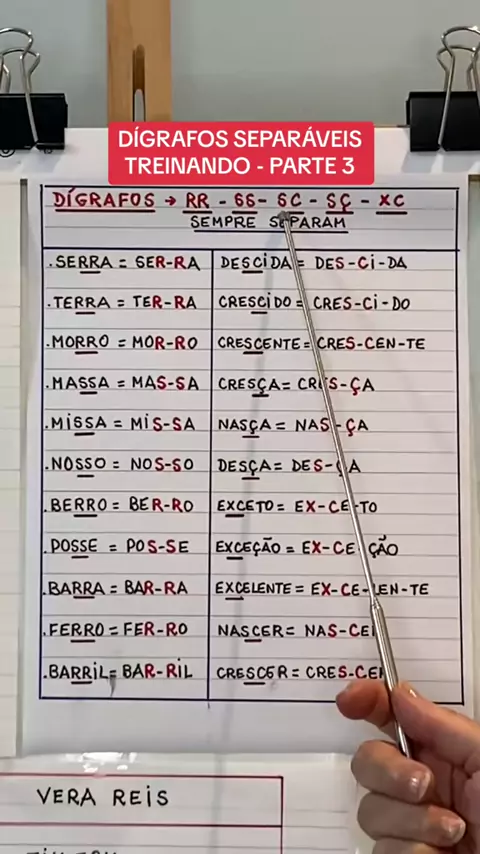 DÍGRAFOS SEPARÁVEIS
TREINANDO - PARTE 3
DÍGRAFOS → RR - SS - SC - SÇ - XC
SEMPRE SEPARAM
.SERRA = SER-RA
.TERRA = TER-RA
.MORRO = MOR-RO
.MASSA = MAS-SA
.MISSA = MIS-SA
.NOSSO = NOS-SO
.BERRO = BER-RO
.POSSE = POS-SE
.BARRA = BAR-RA
.FERRO = FER-RO
.BARRIL = BAR-RIL
DESCIDA = DES-CI-DA
CRESCIDO = CRES-CI-DO
CRESCENTE = CRES-CEN-TE
CRESÇA = CRES-ÇA
NASÇA = NAS-ÇA
DESÇA = DES-ÇA
EXCETO = EX-CE-TO
EXCEÇÃO = EX-CE-ÇÃO
EXCELENTE = EX-CE-LEN-TE
NASCER = NAS-CE
CRESCER = CRES-CE
VERA REIS